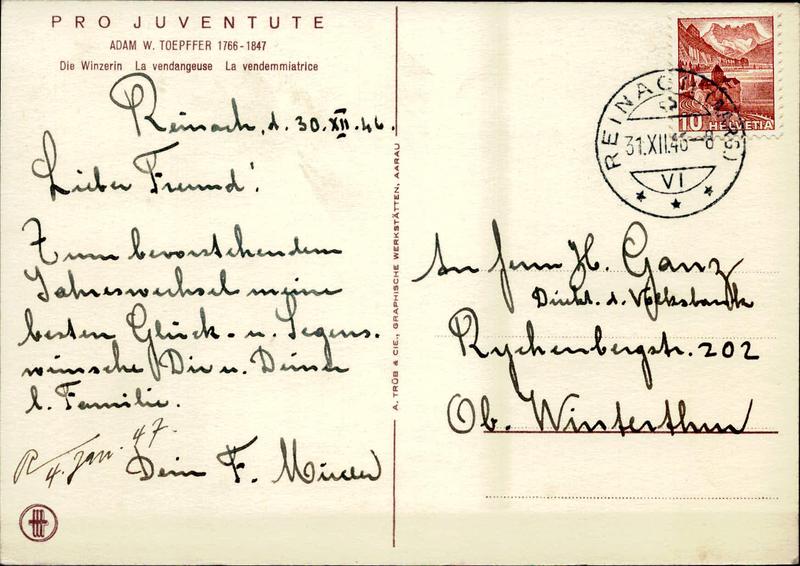 PRO JUVENTUTE
ADAM W. TOEPFFER 1766-1847
Die Winzerin La vendangeuse La vendemmiatrice
Reinach, d. 30.XII.46.
Lieber Freund!
Zum bevorstehendem
Jahreswechsel meine
besten Glück- u. Segens-
wünsche Dir u. Deiner
l. Familie.
Dein F.
R 4. Jan. 47.
A. TRÜB & CIE., GRAPHISCHE WERKSTÄTTEN, AARAU
10 HELVETIA
REINACH (AARG.)
31.XII.46-8
VI
An Herrn H. Ganz
Direkt. d. Volksbank
Rychenbergstr. 202
Ob. Winterthur